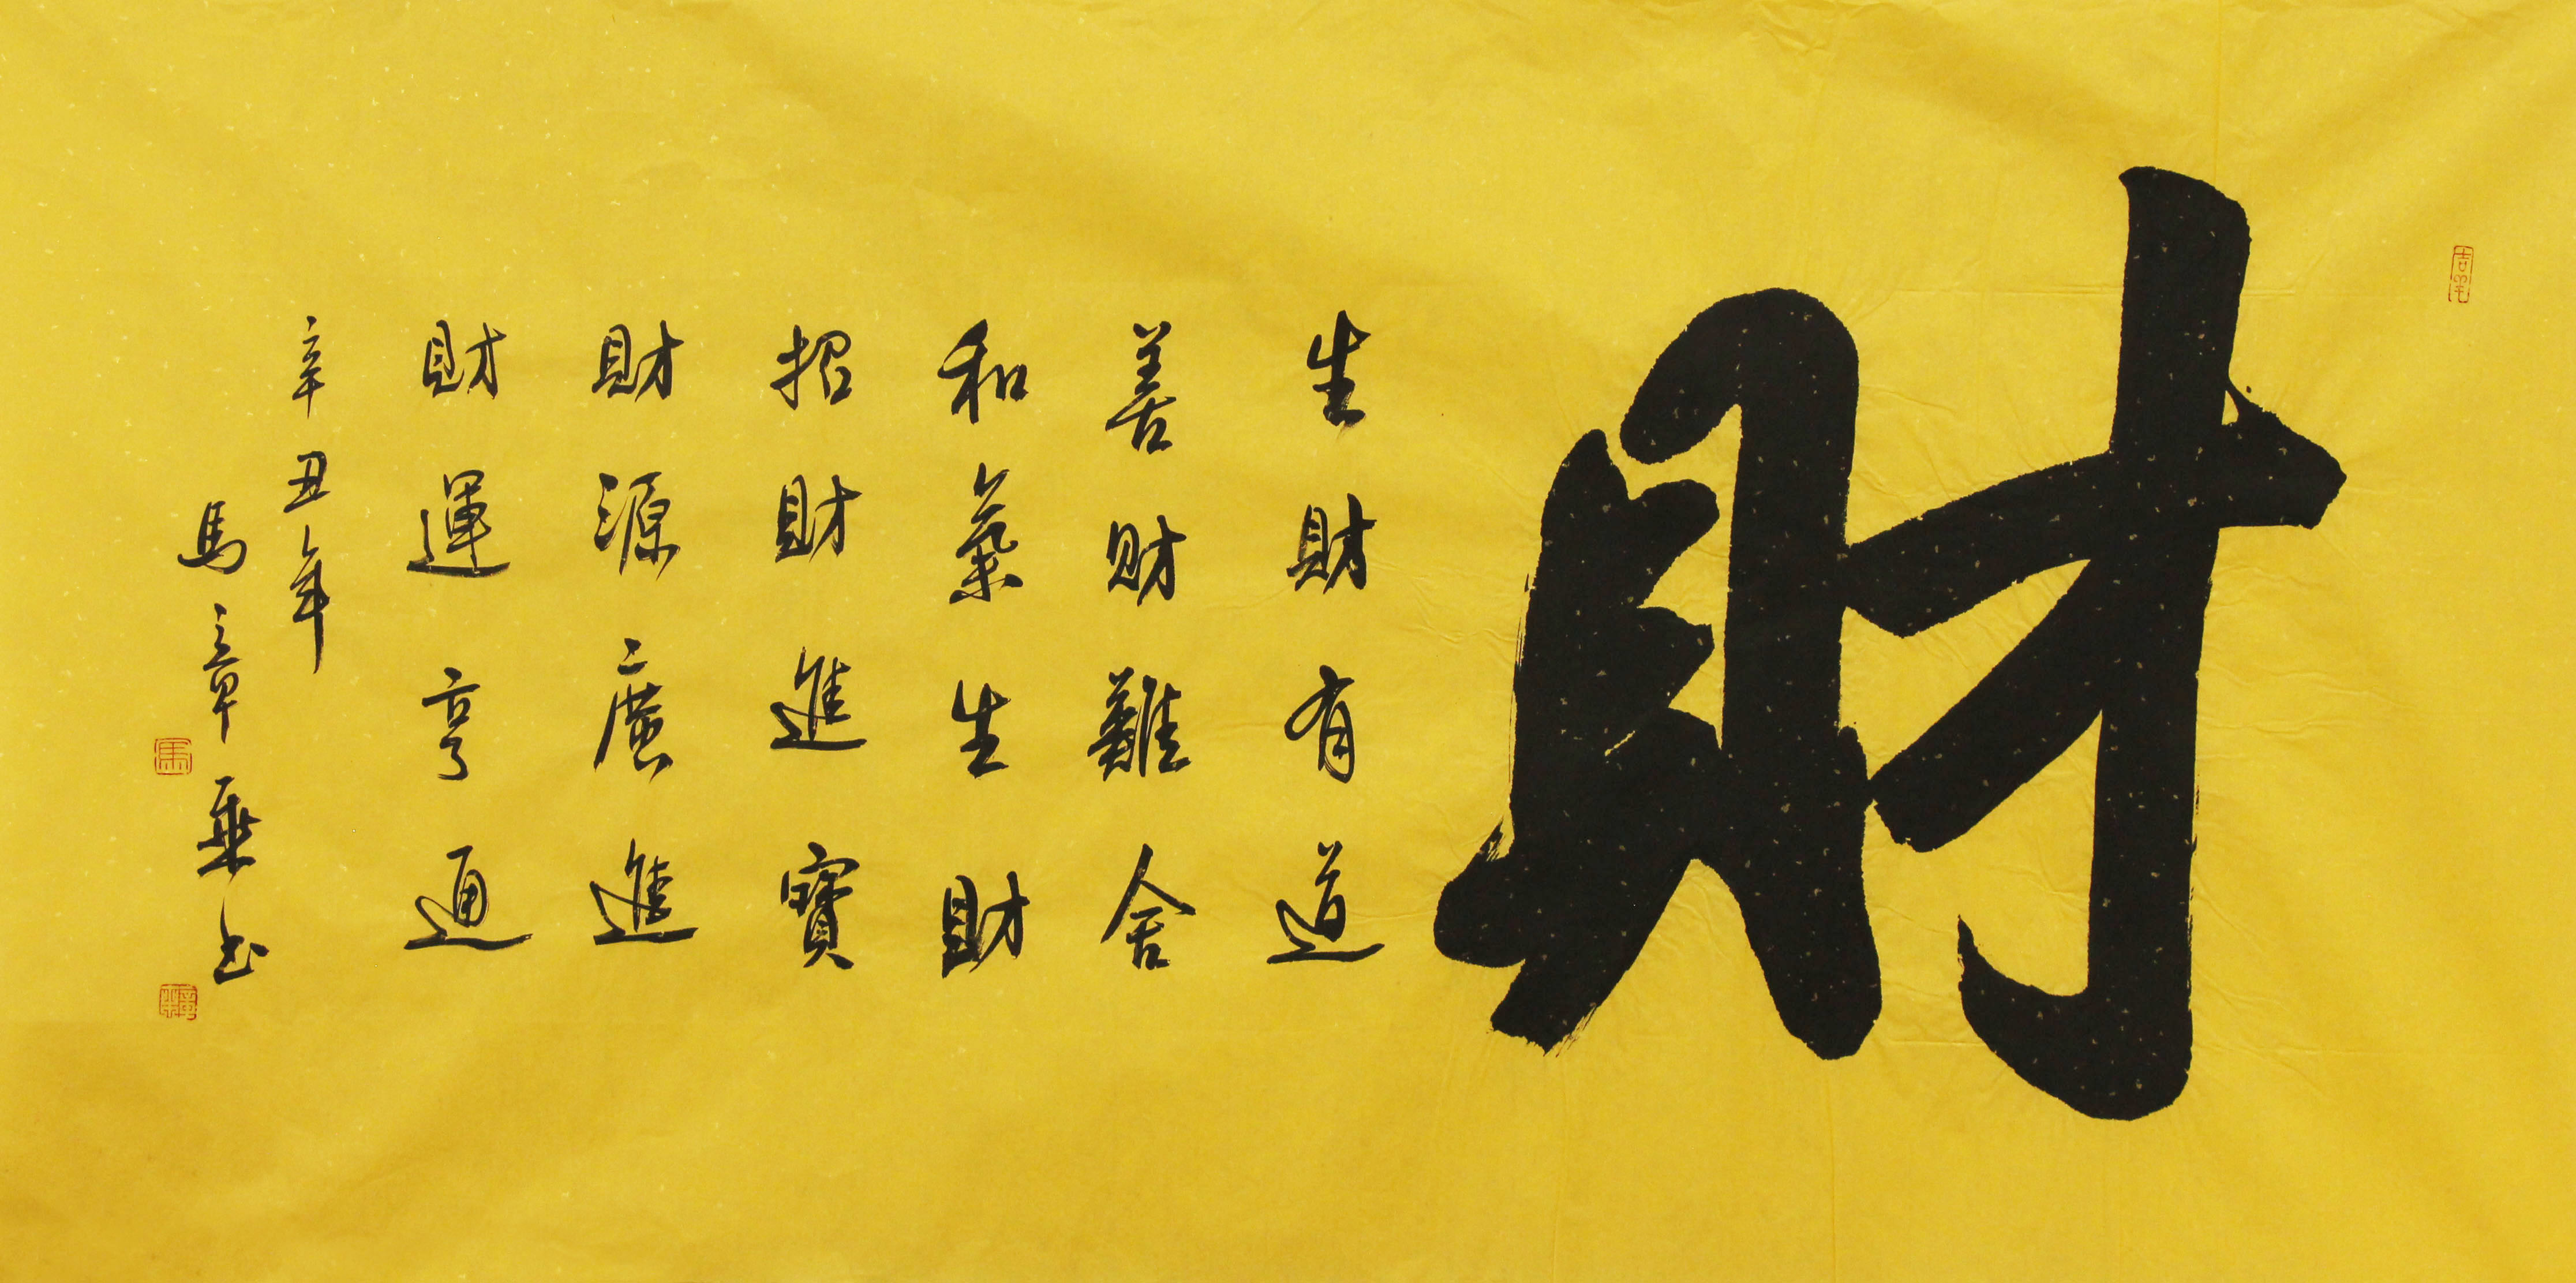 財
生財有道
善財難舍
和氣生財
招財進寶
財源廣進
財運亨通
辛丑年
馬章乘書
馬